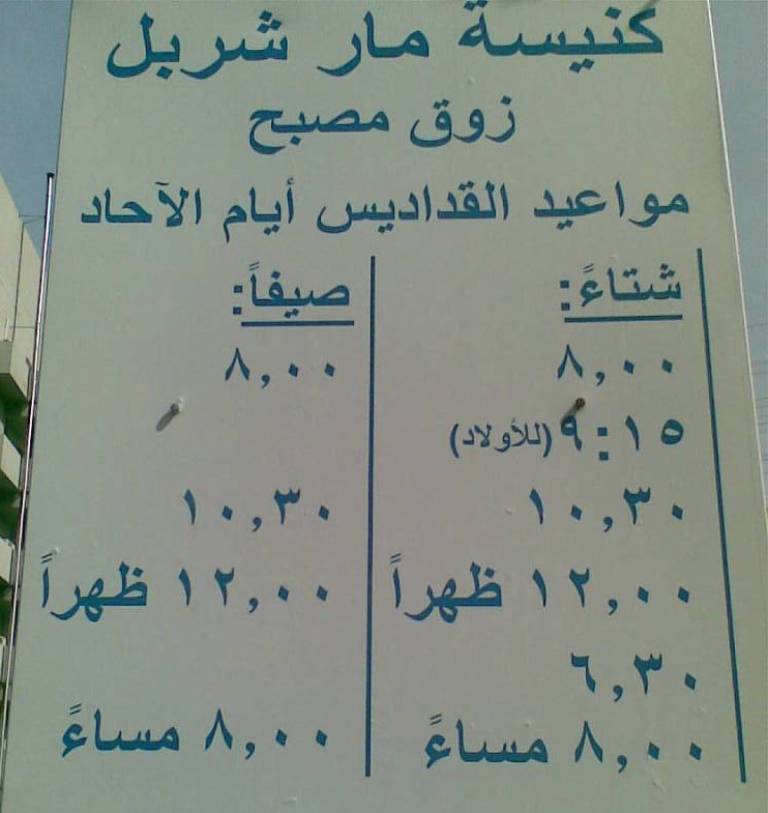 كنيسة مار شربل
زوق مصبح
مواعيد القداديس أيام الآحاد
شتاءً:
٨,٠٠
٩:١٥ (للأولاد)
١٠,٣٠
١٢,٠٠ ظهراً
٦,٣٠
٨,٠٠ مساءً
صيفاً:
٨,٠٠
١٠,٣٠
١٢,٠٠ ظهراً
٨,٠٠ مساءً